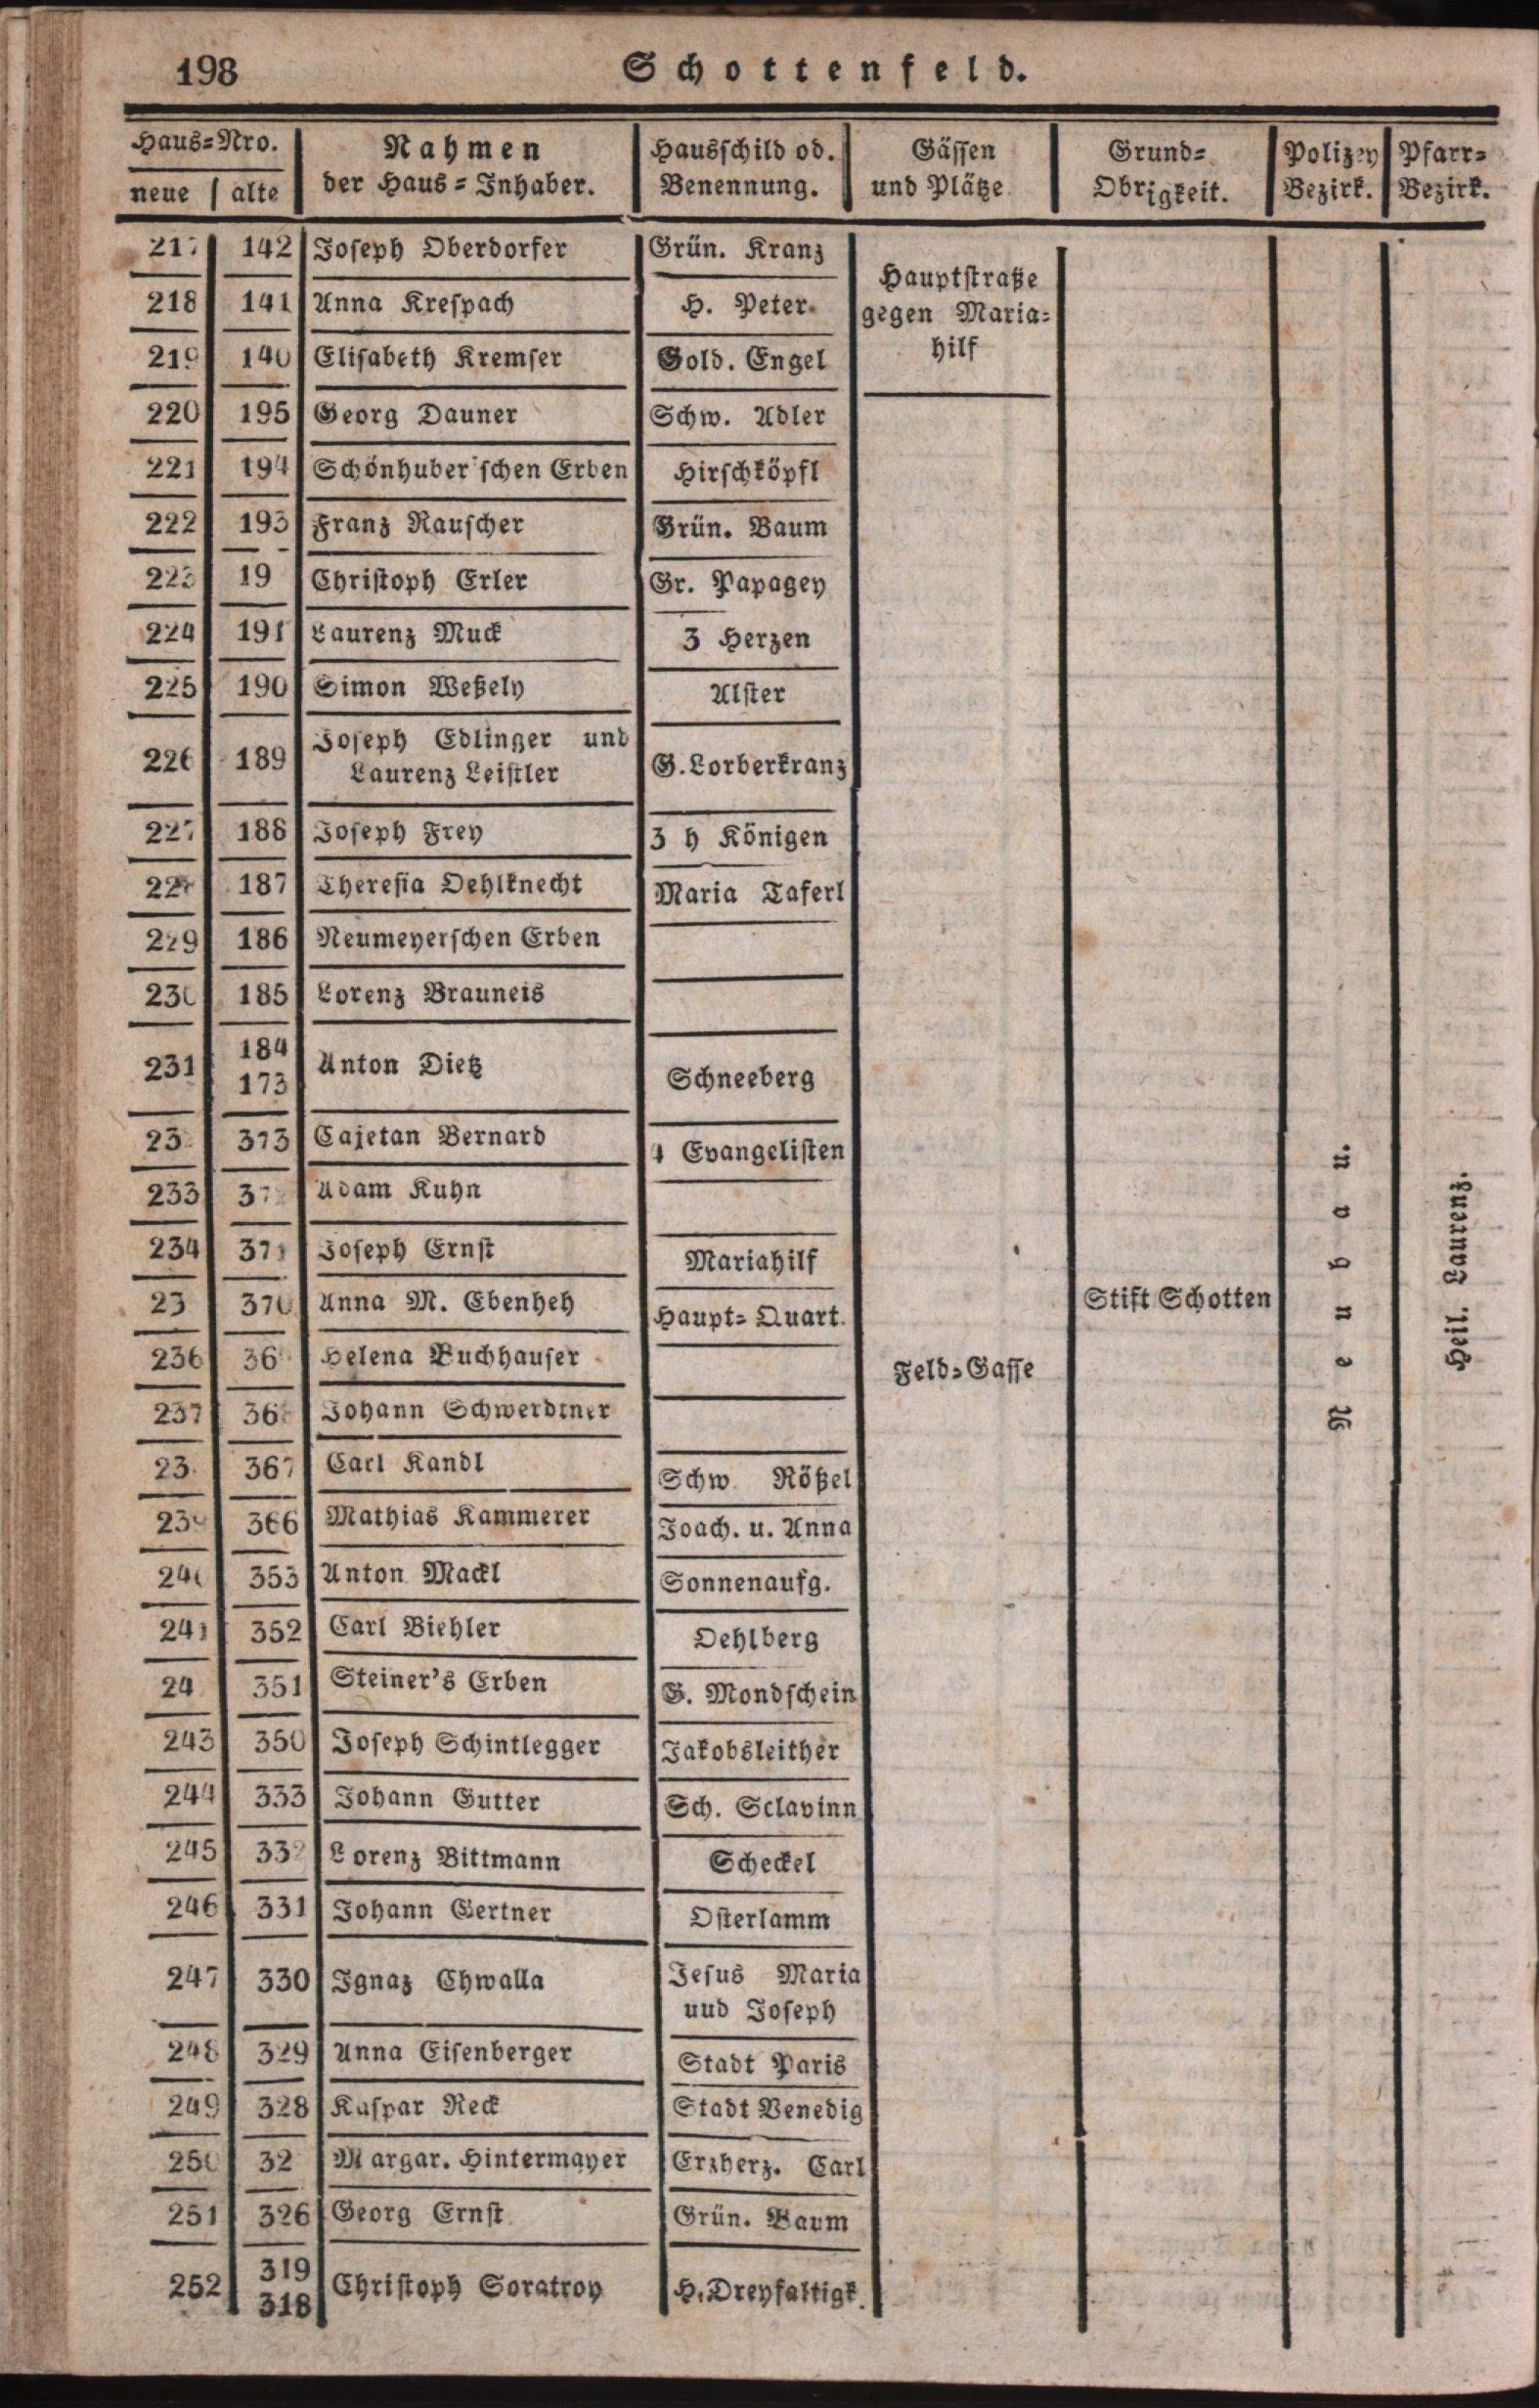 198 Schottenfeld.
Haus-Nro. Nahmen Hausschild od. Gässen Grund- Polizey Pfarr-
neue alte der Haus-Inhaber. Benennung. und Plätze Obrigkeit. Bezirk. Bezirk.
217 142 Joseph Oberdorfer Grün. Kranz
Hauptstraße
218 141 Anna Krespach H. Peter. gegen Maria-
219 140 Elisabeth Kremser Gold. Engel hilf
220 195 Georg Dauner Schw. Adler
221 194 Schönhuber'schen Erben Hirschköpfl
222 193 Franz Rauscher Grün. Baum
223 19 Christoph Erler Gr. Papagey
224 191 Laurenz Muck 3 Herzen
225 190 Simon Weßely Alster
Joseph Edlinger und
226 189 G. Lorberkranz
Laurenz Leistler
227 188 Joseph Frey 3 h Königen
22 187 Theresia Oehlknecht Maria Taferl
229 186 Neumeyerschen Erben
230 185 Lorenz Brauneis
184
231 Anton Dietz Schneeberg
173
23 373 Cajetan Bernard 4 Evangelisten
233 37 Adam Kuhn
234 371 Joseph Ernst Mariahilf
23 370 Anna M. Ebenheh Haupt-Quart. Stift Schotten Neubau. Heil. Laurenz.
236 36 Helena Buchhauser Feld-Gasse
237 36 Johann Schwerdtner
23 367 Carl Kandl Schw. Rößel
239 366 Mathias Kammerer Joach. u. Anna
240 353 Anton Mackl Sonnenaufg.
241 352 Carl Biehler Oehlberg
24 351 Steiner's Erben G. Mondschein
243 350 Joseph Schintlegger Jakobsleither
244 333 Johann Gutter Sch. Sclavinn
245 332 Lorenz Bittmann Scheckel
246 331 Johann Gertner Osterlamm
247 330 Ignaz Chwalla Jesus Maria
uud Joseph
248 329 Anna Eisenberger Stadt Paris
249 328 Kaspar Reck Stadt Venedig
250 32 Margar. Hintermayer Erzherz. Carl
251 326 Georg Ernst Grün. Baum
319
252 Christoph Soratroy H. Dreyfaltigk.
318